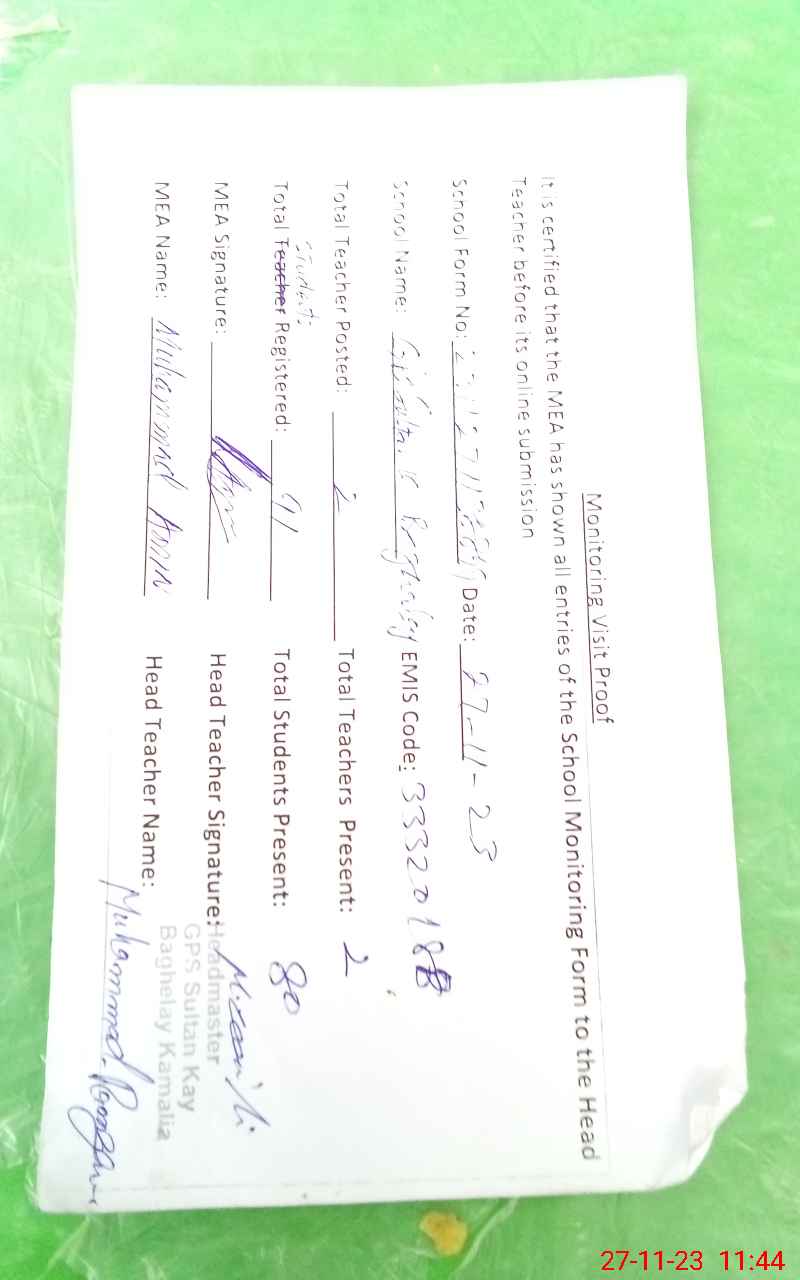 Monitoring Visit Proof
It is certified that the MEA has shown all entries of the School Monitoring Form to the Head
Teacher before its online submission
School Form No: Date: 27-11-23
School Name: EMIS Code: 33320188
Total Teacher Posted: 2 Total Teachers Present: 2
Student:
Total Teacher Registered: 91 Total Students Present: 80
MEA Signature: Head Teacher Signature:
Headmaster
GPS Sultan Kay
Baghelay Kamalia
MEA Name: Muhammad Amin Head Teacher Name: Muhammad
27-11-23 11:44